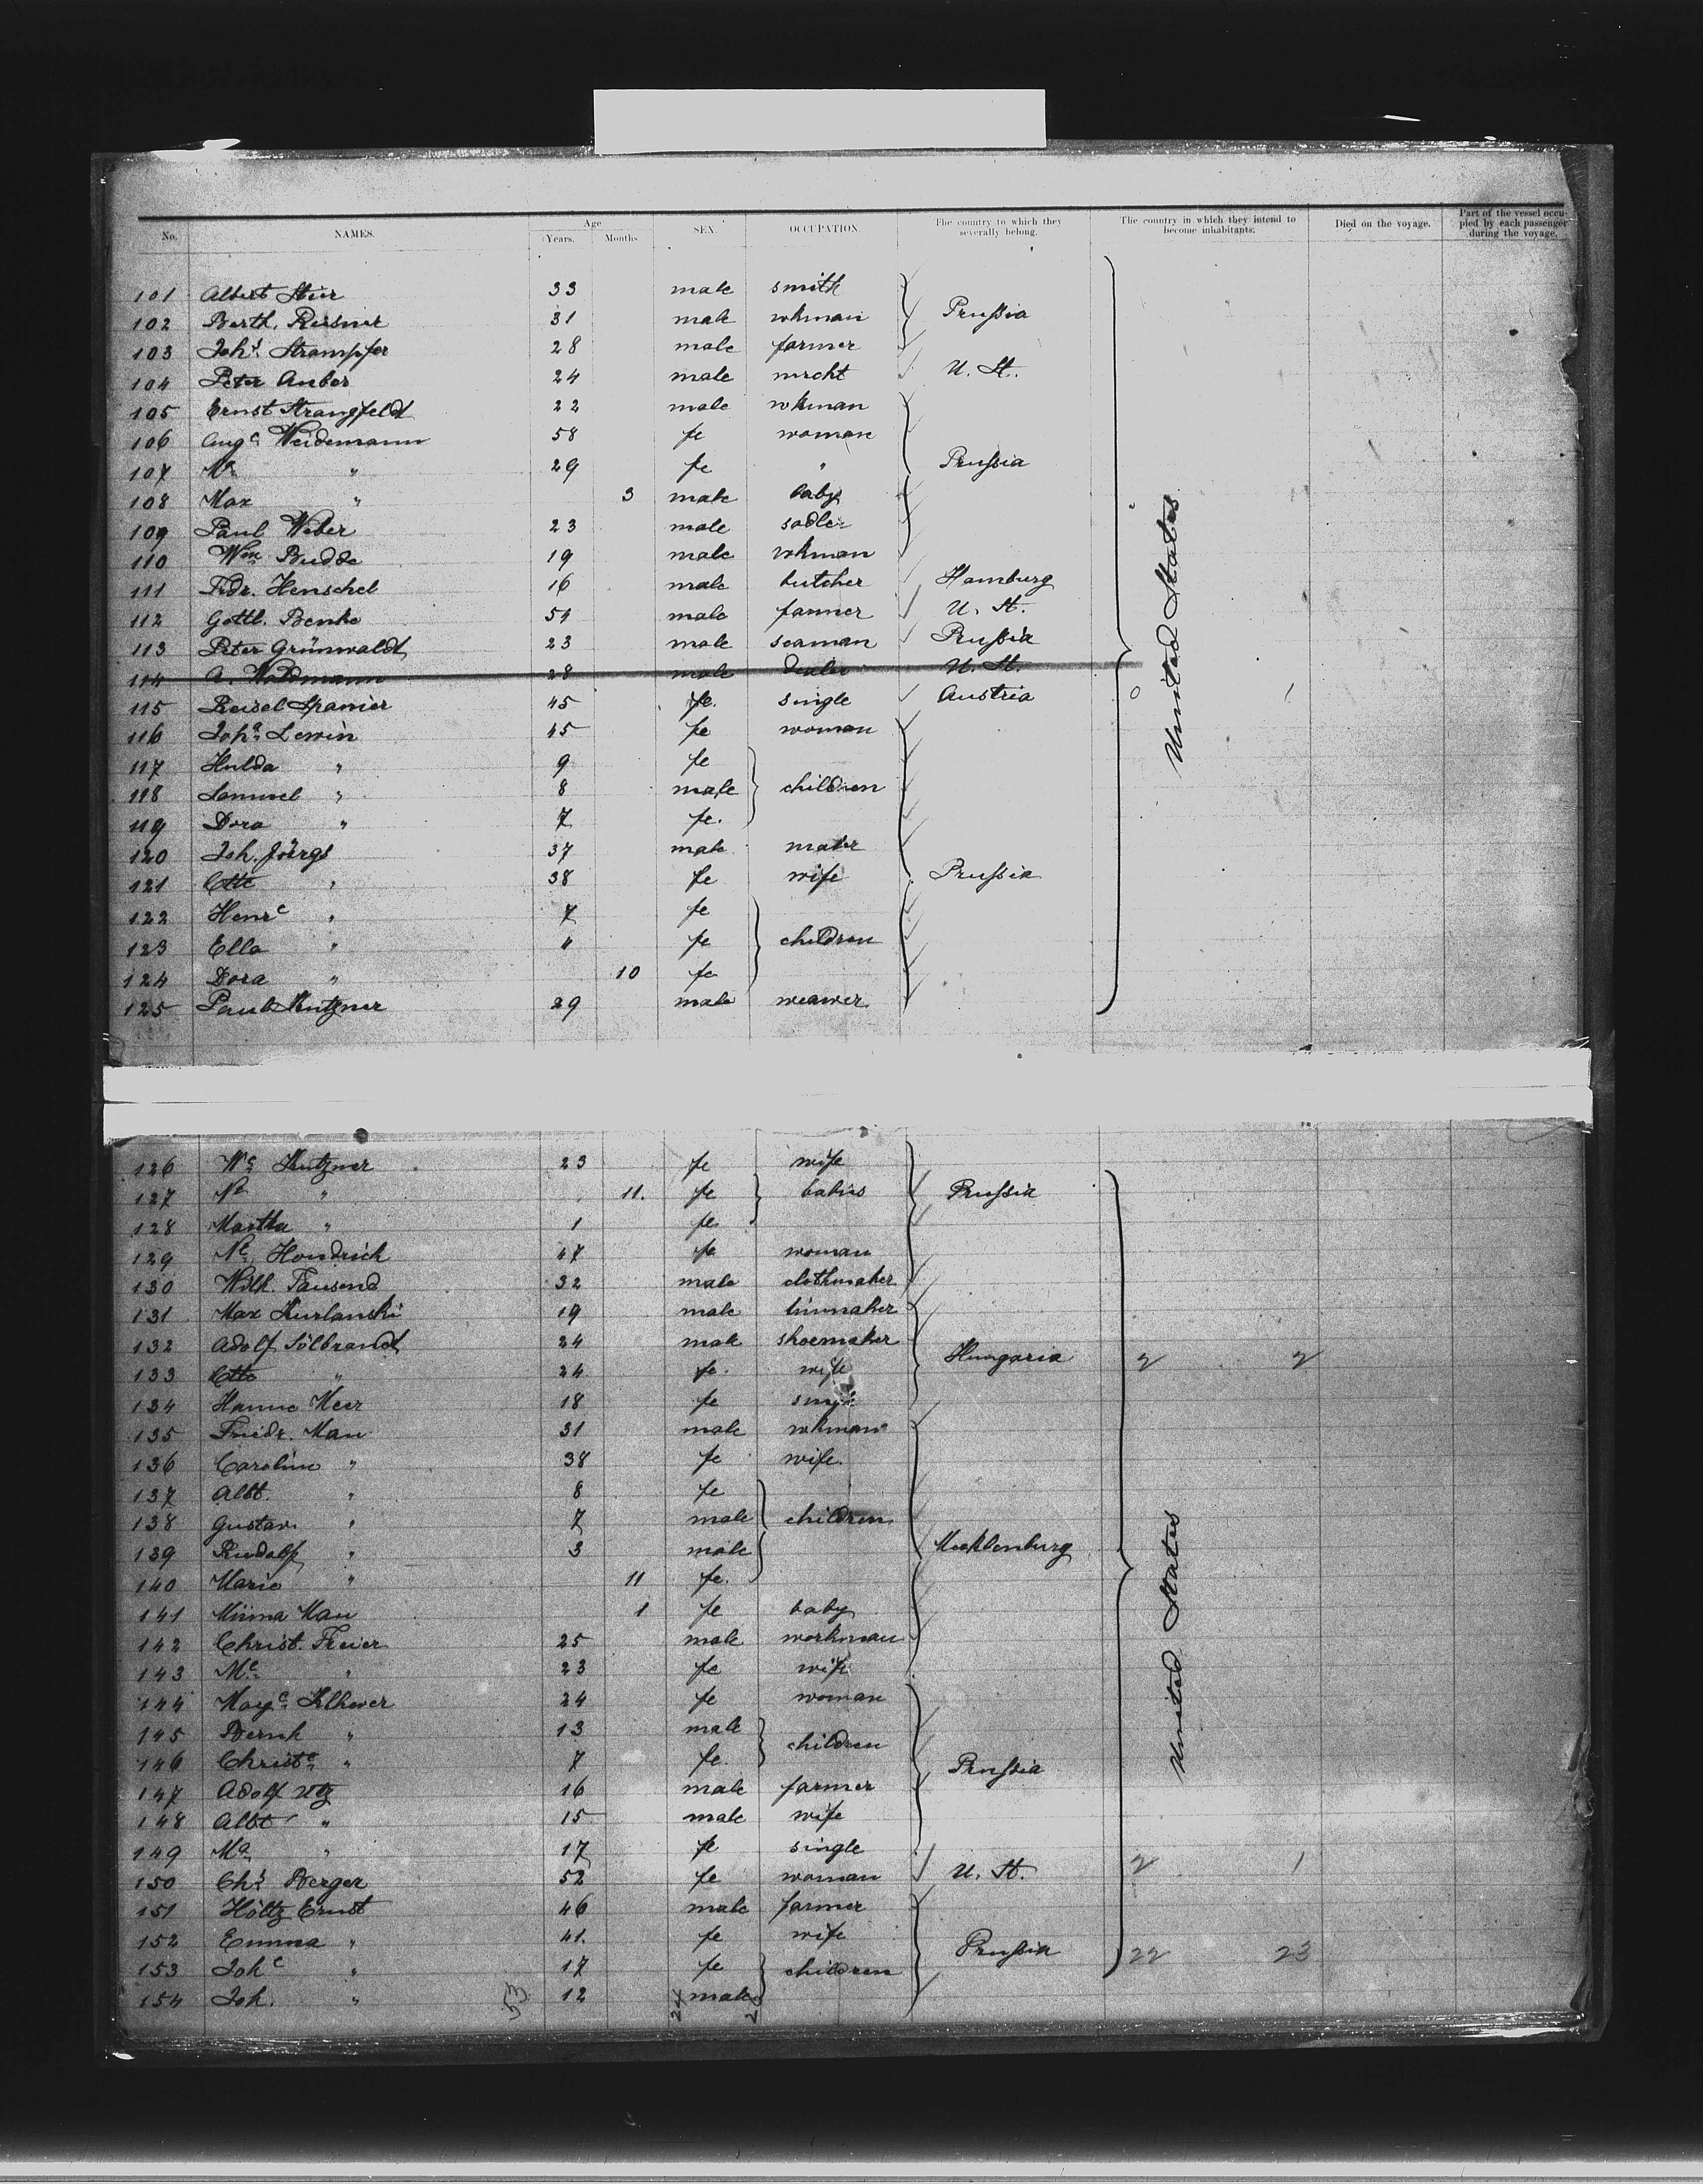 No. NAMES. Age Years. Months SEX. OCCUPATION. The country to which they severally belong. The country in which they intend to become inhabitants. Died on the voyage. Part of the vessel occupied by each passenger during the voyage.
101 Albert Stier 33 male smith
102 Berth. Reisner 31 male wkman Prussia
103 Johs. Strampfer 28 male farmer
104 Peter Anber 24 male mrcht U. St.
105 Ernst Strangfeldt 22 male wkman
106 Auge Weidemann 58 fe woman
107 " 29 fe " Prussia
108 Max " 3 male baby
109 Paul Weber 23 male sadler
110 Wm Budde 19 male wkman
111 Frdr. Henschel 16 male butcher Hamburg
112 Gottl. Benke 54 male farmer U. St.
113 Peter Grünwaldt 23 male seaman Prussia
114 A. Waldmann 28 male dealer U. St.
115 Reisel Spanier 45 fe. single Austria
116 Joha Lewin 45 fe woman
117 Hulda " 9 fe
118 Samuel " 8 male children
119 Dora " 7 fe.
120 Joh. Jörgs 37 male
121 " 38 fe wife Prussia
122 Henre " 7 fe
123 Ella " 4 fe children
124 Dora " 10 fe
125 Paul Kutzner 29 male weawer
United States
126 We Kutzner 23 fe wife
127 " 11. fe babies Prussia
128 Martha " 1 fe.
129 Hondrich 47 fe woman
130 Wilh. Tausend 32 male clothmaker
131 Max Kurlanski 19 male
132 Adolf Sölbrandt 24 male shoemaker
133 " 24 fe. wife Hungaria 2 2
134 Hanne Meer 18 fe single
135 Friedr. Man 31 male wkman
136 Caroline " 38 fe wife.
137 Albt. " 8 fe
138 Gustav " 7 male children
139 Rudolf " 3 male Mecklenburg
140 Marie " 11 fe.
141 Minna Man 1 fe baby
142 Christ. Freier 25 male workman
143 Me " 23 fe wife
144 Marge Klhever 24 fe woman
145 Bernh " 13 male children
146 Christe " 7 fe.
147 Adolf Utz 16 male farmer Prussia
148 Albt " 15 male wife
149 Ma " 17 fe single
150 Chs Berger 52 fe woman U. St. 2 1
151 Höltz Ernst 46 male farmer
152 Emma " 41. fe wife Prussia 22 23
153 Johe " 17 fe children
154 Joh. " 12 male
United States
53 24